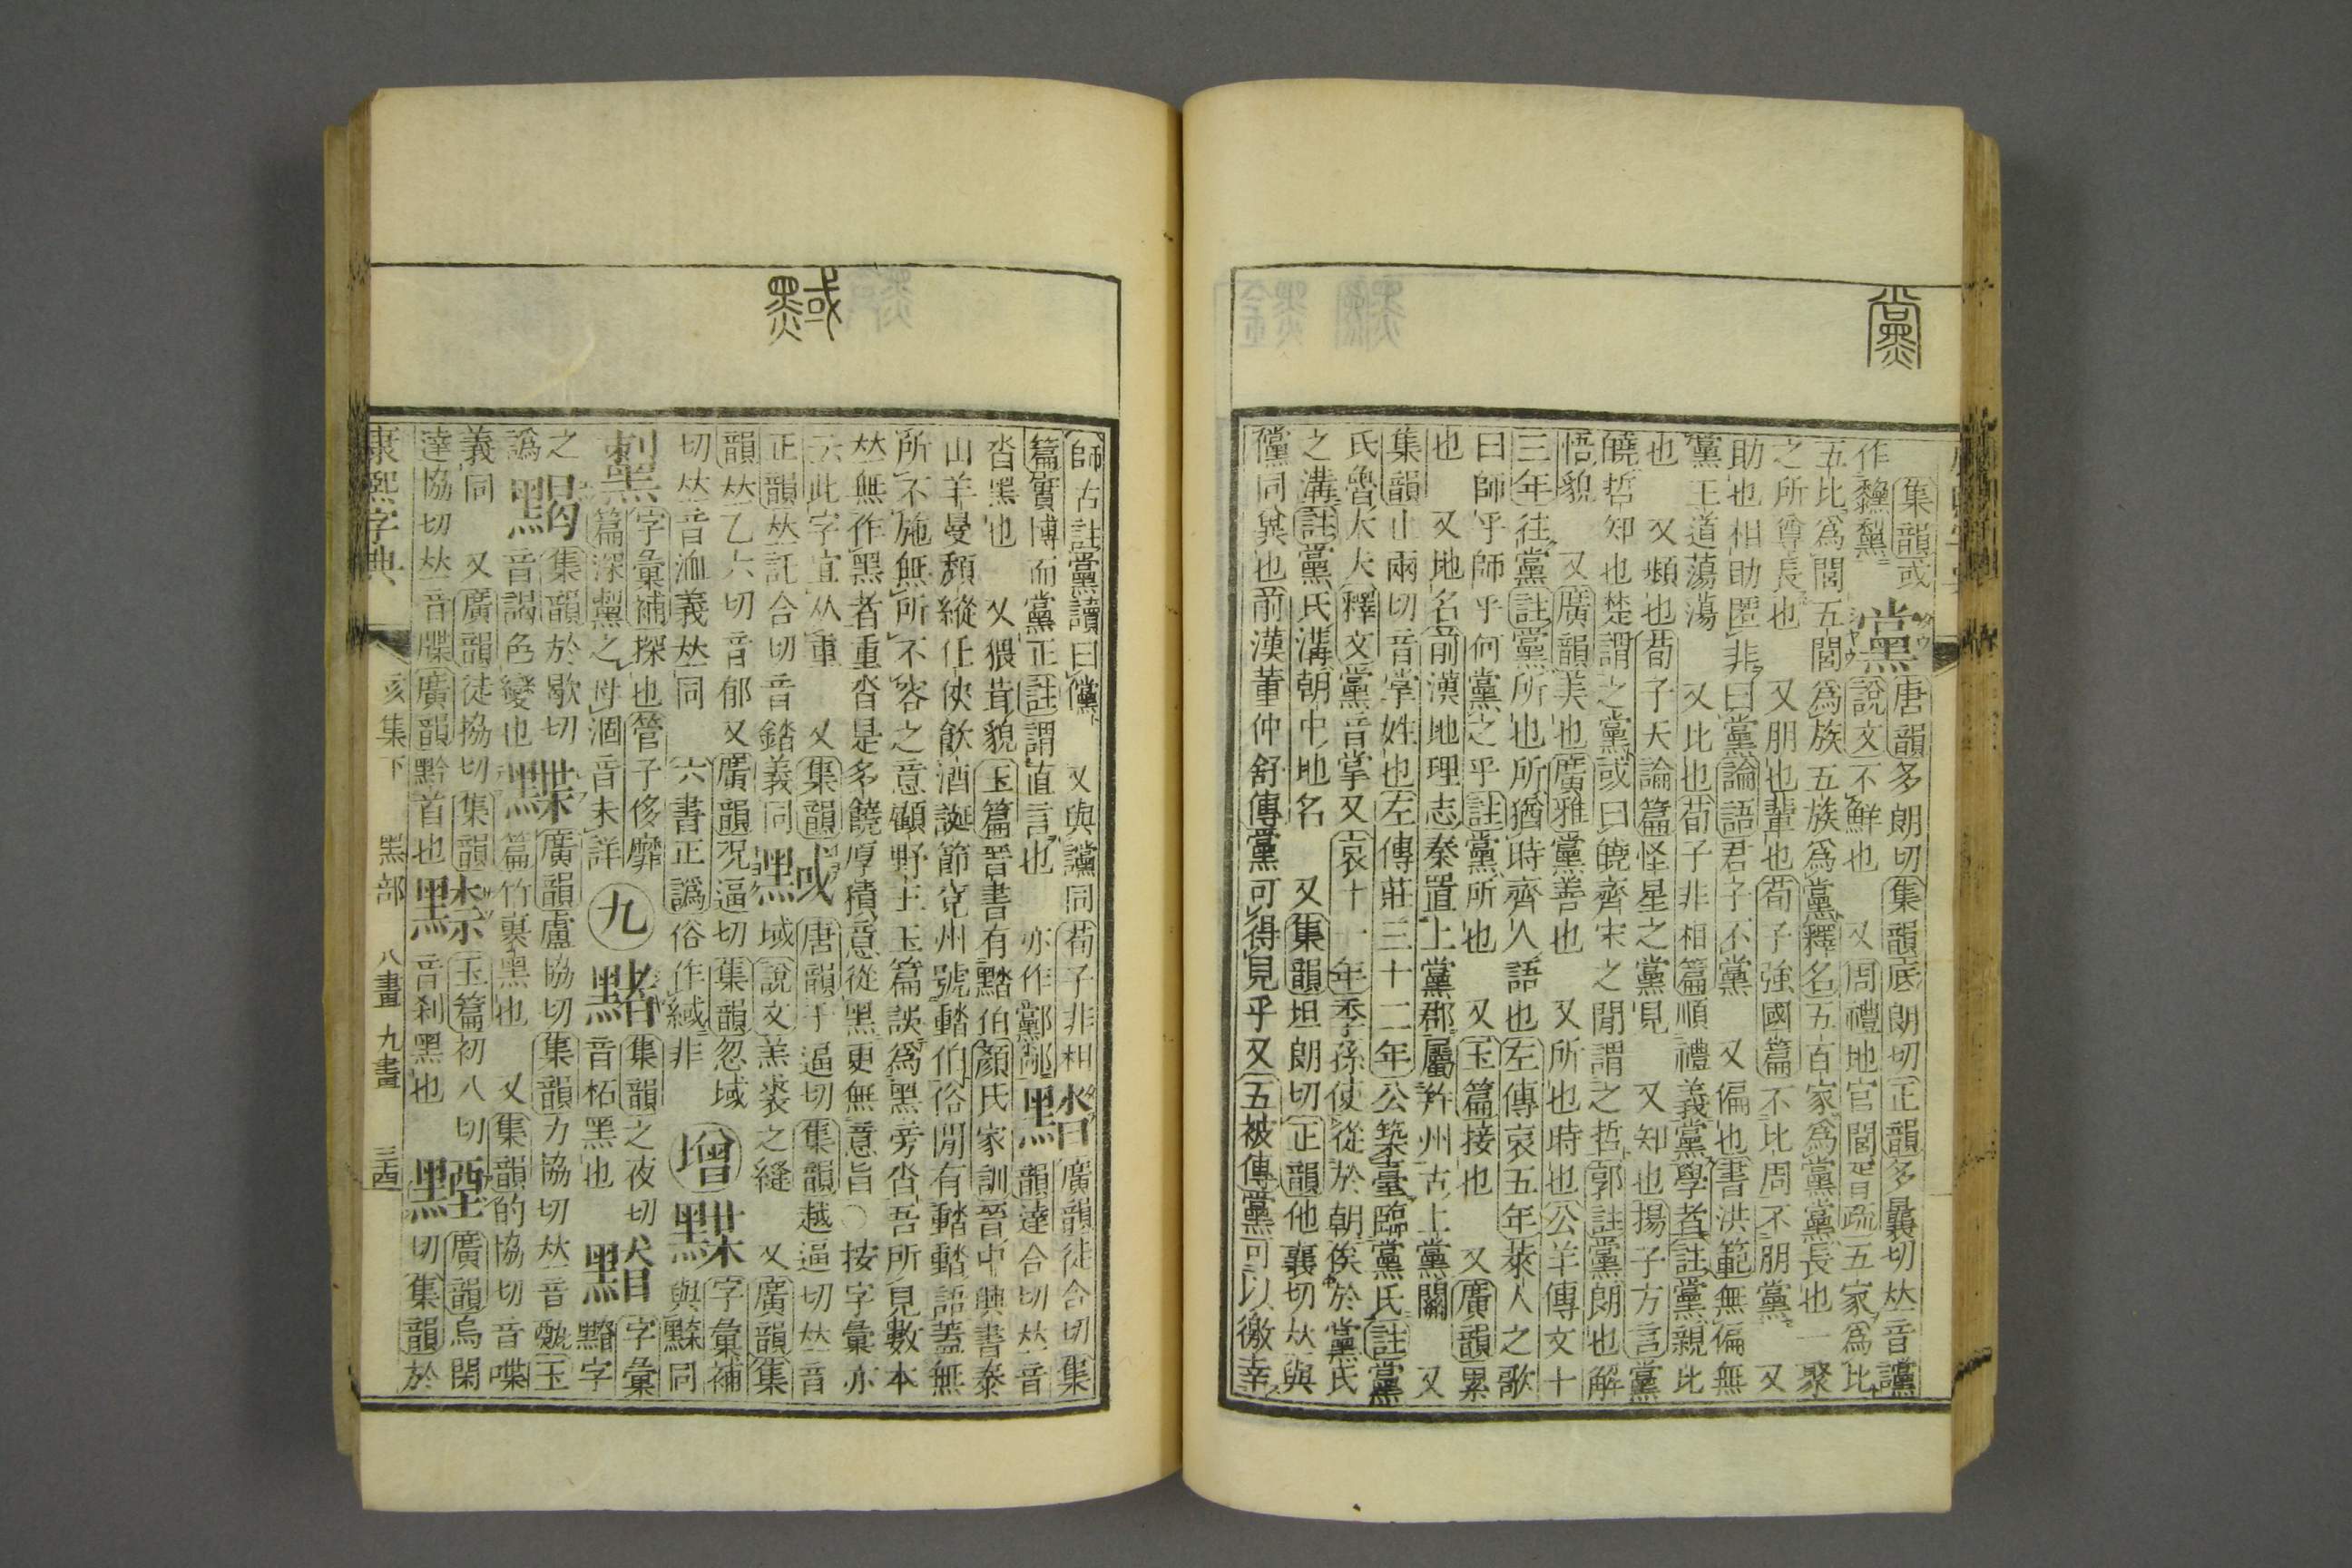 集韻或黨唐韻多朗切集韻底朗切正韻多曩切𠀤音讜
作說文不鮮也 又周禮地官閭胥疏五家爲比
五比爲閭五閭爲族五族爲黨釋名五百家爲黨黨長也一聚
之所尊長也 又朋也輩也荀子強國篇不比周不朋黨 又
助也相助匿非曰黨論語君子不黨 又偏也書洪範無偏無
黨王道蕩蕩 又比也荀子非相篇順禮義黨學者註黨親比
也 又頻也荀子天論篇怪星之黨見 又知也揚子方言黨
曉哲知也楚謂之黨或曰曉齊宋之閒謂之哲郭註黨朗也解
悟貌 又廣韻美也廣雅黨善也 又所也時也公羊傳文十
三年往黨註黨所也所猶時齊人語也左傳哀五年萊人之歌
曰師乎師乎何黨之乎註黨所也 又玉篇接也 又廣韻累
也 又地名前漢地理志秦置上黨郡屬幷州古上黨關 又
集韻止兩切音掌姓也左傳莊三十二年公築臺臨黨氏註黨
氏魯大夫釋文黨音掌又哀十一年季孫使從於朝俟於黨氏
之溝註黨氏溝朝中地名 又集韻坦朗切正韻他曩切𠀤與
儻同異也前漢董仲舒傳黨可得見乎又五被傳黨可以徼幸
師古註黨讀曰儻 又與讜同荀子非相 廣韻徒合切集
篇實博而黨正註謂直言也 亦作 韻達合切𠀤音
沓黑也 又猥茸貌玉篇晉書有伯顏氏家訓晉中興書泰
山羊曼頹縱任俠飮酒誕節兗州號伯俗閒有語蓋無
所不施無所不容之意顧野王玉篇誤爲黑旁沓吾所見數本
𠀤無作黑者重沓是多饒厚積意從黑更無意旨○按字彙亦
云此字宜从重 又集韻 唐韻于逼切集韻越逼切𠀤音
正韻𠀤託合切音錔義同 域說文羔裘之縫 又廣韻集
韻𠀤乙六切音郁又廣韻況逼切集韻忽域 字彙補
切𠀤音洫義𠀤同 六書正譌俗作緎非 增 與同
字彙補探也管子侈靡 集韻之夜切 字彙
篇深之 涸音未詳 九 音柘黑也 字
之 集韻於歇切 廣韻盧協切集韻力協切𠀤音 玉
譌 音謁色變也 篇竹裏黑也 又集韻的協切音喋
義同 又廣韻徒協切集韻 玉篇初八切 廣韻烏閑
達協切𠀤音牒廣韻黔首也 音刹黑也 切集韻於
康熙字典 亥集下 黑部 八畫 九畫 三四